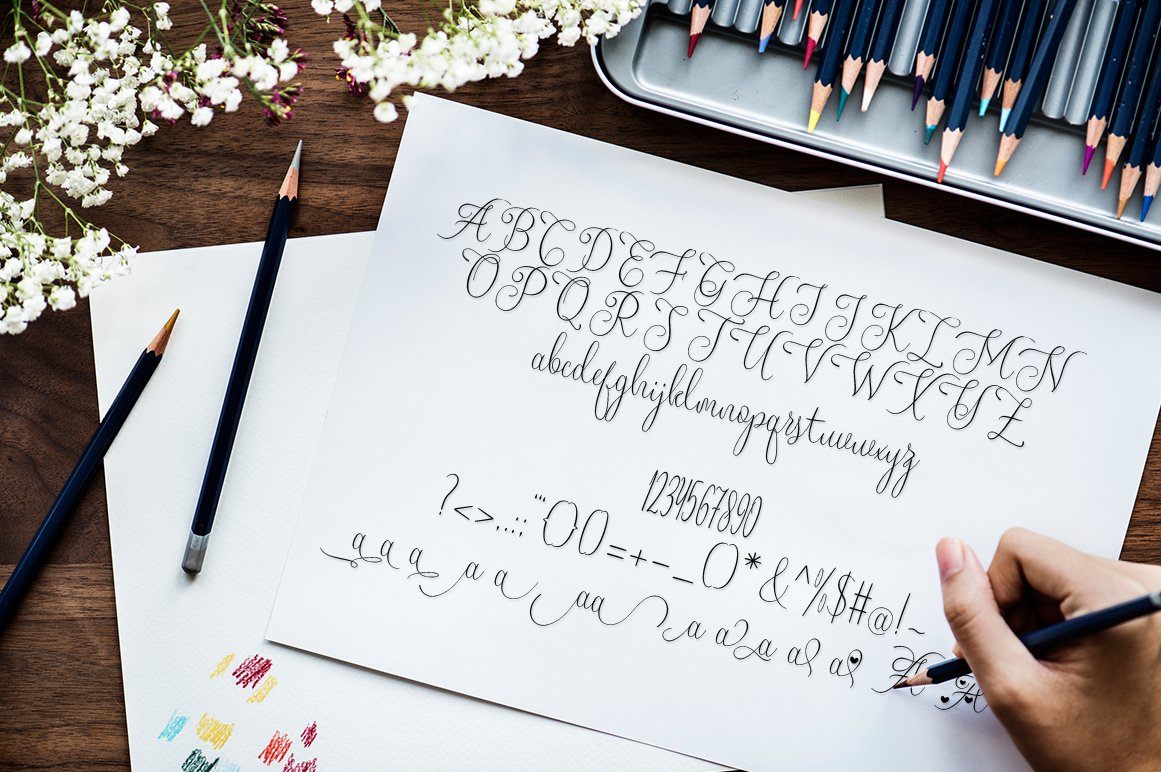 A B C D E F G H I J K L M N
O P Q R S T U V W X Y Z
abcdefghijklmnopqrstuvwxyz
1234567890
?<>..::'''{}()=+-_[]*&^%$#@!~
a a a a a aa a a a a A A